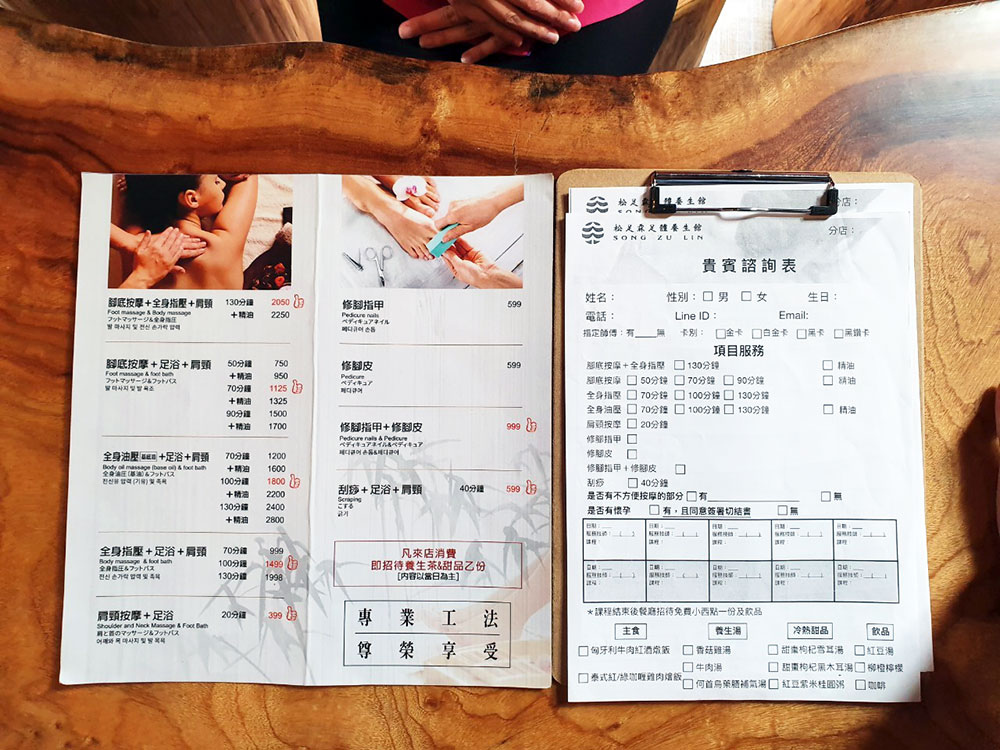 腳底按摩＋全身指壓＋肩頸 130分鐘 2050
Foot massage & Body massage ＋精油 2250
フットマッサージ&全身指圧
발 마사지 및 전신 손가락 압력
腳底按摩＋足浴＋肩頸 50分鐘 750
Foot massage & foot bath ＋精油 950
フットマッサージ&フットバス 70分鐘 1125
발 마사지 및 발 목욕 ＋精油 1325
90分鐘 1500
＋精油 1700
全身油壓 ＋足浴＋肩頸 70分鐘 1200
Body oil massage (base oil) & foot bath ＋精油 1600
全身油圧(基油)&フットバス 100分鐘 1800
전신유 압력 (기유) 및 족욕 ＋精油 2200
130分鐘 2400
＋精油 2800
全身指壓＋足浴＋肩頸 70分鐘 999
Body massage & foot bath 100分鐘 1499
全身指圧&フットバス 130分鐘 1998
전신 손가락 압력 및 족욕
肩頸按摩＋足浴 20分鐘 399
Shoulder and Neck Massage & Foot Bath
肩と首のマッサージ&フットバス
어깨와 목 마사지 및 발 목욕
修腳指甲 599
Pedicure nails
ペディキュアネイル
페디큐어 손톱
修腳皮 599
Pedicure
ペディキュア
페디큐어
修腳指甲＋修腳皮 999
Pedicure nails & Pedicure
ペディキュアネイル&ペディキュア
페디큐어 손톱&페디큐어
刮痧＋足浴＋肩頸 40分鐘 599
Scraping
こする
긁기
凡來店消費
即招待養生茶&甜品乙份
[内容以當日為主]
專業工法
尊榮享受
松足森足體養生館 分店：
SONG ZU LIN
松足森足體養生館 分店：
SONG ZU LIN
貴賓諮詢表
姓名： 性別：□男 □女 生日：
電話： Line ID： Email:
指定師傅：有___無 卡別：□金卡 □白金卡 □黑卡 □黑鑽卡
項目服務
腳底按摩＋全身指壓 □130分鐘 □精油
腳底按摩 □50分鐘 □70分鐘 □90分鐘 □精油
全身指壓 □70分鐘 □100分鐘 □130分鐘
全身油壓 □70分鐘 □100分鐘 □130分鐘 □精油
肩頸按摩 □20分鐘
修腳指甲 □
修腳皮 □
修腳指甲＋修腳皮 □
刮痧 □40分鐘
是否有不方便按摩的部分 □有 □無
是否有懷孕 □有，且同意簽署切結書 □無
日期： 日期： 日期： 日期： 日期：
服務技師： 服務技師： 服務技師： 服務技師： 服務技師：
課程： 課程： 課程： 課程： 課程：
日期： 日期： 日期： 日期： 日期：
服務技師： 服務技師： 服務技師： 服務技師： 服務技師：
課程： 課程： 課程： 課程： 課程：
＊課程結束後餐廳招待免費小西點一份及飲品
主食 養生湯 冷熱甜品 飲品
□匈牙利牛肉紅酒燉飯 □香菇雞湯 □甜棗枸杞雪耳湯 □紅豆湯
□牛肉湯 □甜棗枸杞黑木耳湯 □柳橙檸檬
□泰式紅/綠咖喱雞肉燉飯 □何首烏藥膳補氣湯 □紅豆紫米桂圓粥 □咖啡